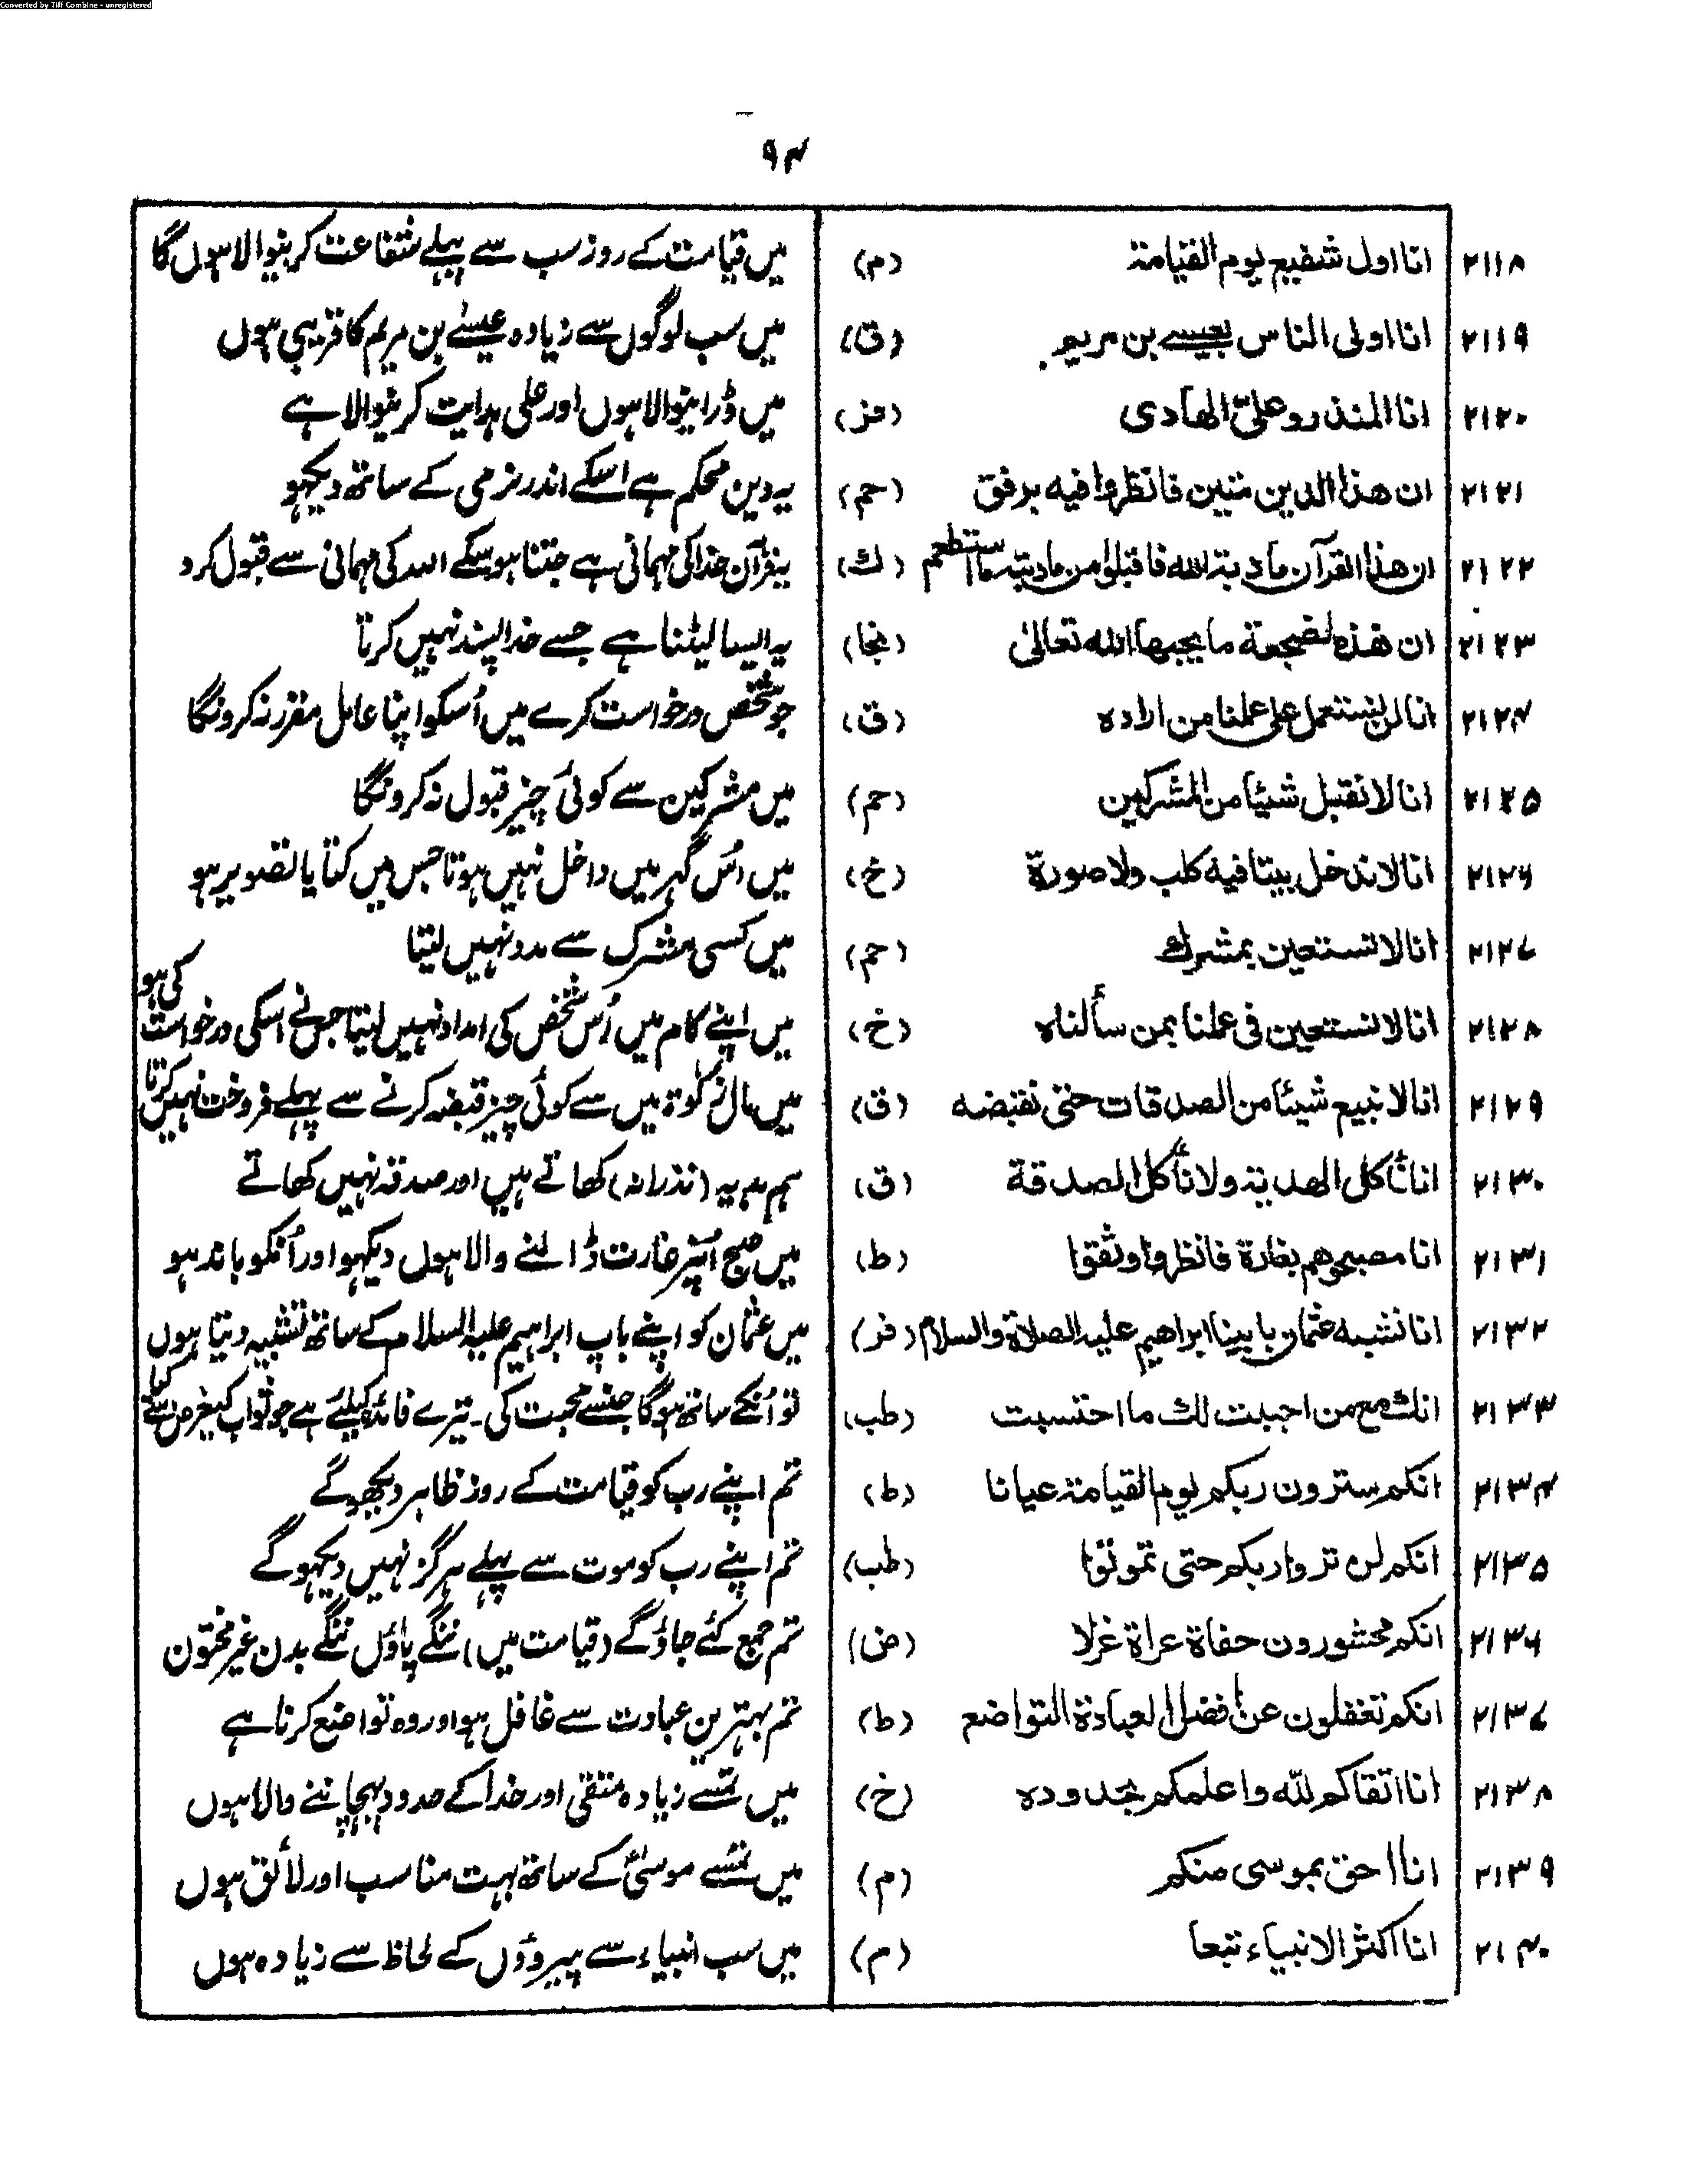 Converted by Tiff Combine - unregistered
۹۴
۲۱۱۸ انا اول شفیع یوم القیامة (م) میں قیامت کے روز سب سے پہلے شفاعت کرینوالا ہوں گا
۲۱۱۹ انا اولی الناس بعیسے بن مریم (ق) میں سب لوگوں سے زیادہ عیسےٰ بن مریم کا قریبی ہوں
۲۱۲۰ انا المنذر و علیّ الهادی (فر) میں ڈرا نیوالا ہوں اور علی ہدایت کرنیوالا ہے
۲۱۲۱ ان هذا الدین متین فانظروا فیه برفق (حم) یہ دین محکم ہے اسکے اندر نرمی کے ساتھ دیکھو
۲۱۲۲ ان هذا القرآن مادبة الله فاقبلوا من مادبته ما استطعتم (ك) یہ قرآن خدا کی مہمانی ہے جتنا ہو سکے اللہ کی مہمانی سے قبول کرو
۲۱۲۳ ان هذه لضجعة ما یحبها الله تعالیٰ (نجا) یہ ایسا لیٹنا ہے جسے خدا پسند نہیں کرتا
۲۱۲۴ انا لن نستعمل علی عملنا من اراده (ق) جو شخص درخواست کرے میں اُسکو اپنا عامل مقرر نہ کرونگا
۲۱۲۵ انا لا نقبل شیئا من المشرکین (حم) میں مشرکین سے کوئی چیز قبول نہ کرونگا
۲۱۲۶ انا لا ندخل بیتا فیه کلب ولا صورة (خ) میں اُس گہر میں داخل نہیں ہوتا جس میں کتا یا تصویر ہو
۲۱۲۷ انا لا نستعین بمشرك (حم) میں کسی مشرک سے مدد نہیں لیتا
۲۱۲۸ انا لا نستعین فی عملنا بمن سألناه (خ) میں اپنے کام میں اُس شخص کی امداد نہیں لیتا جس نے اسکی درخواست کی ہو
۲۱۲۹ انا لا نبیع شیئا من الصدقات حتی نقبضه (ق) میں مال زکوٰة میں سے کوئی چیز قبضہ کرنے سے پہلے فروخت نہیں کرتا
۲۱۳۰ انا نأکل الهدیة ولا نأکل الصدقة (ق) ہم ہدیہ (نذرانہ) کھاتے ہیں اور صدقہ نہیں کھاتے
۲۱۳۱ انا مصبحوهم بغارة فانظروا وثقوا (ط) میں صبح اُنپر غارت ڈالنے والا ہوں دیکہو اور اُنکو باندہو
۲۱۳۲ انا نشبه عثمان بابینا ابراهیم علیه الصلاة والسلام (فر) میں عثمان کو اپنے باپ ابراہیم علیہ السلام کے ساتھ تشبیہ دیتا ہوں
۲۱۳۳ انك مع من احببت لك ما احتسبت (طب) تو اُنکے ساتھ ہو گا جنسے محبت کی۔ تیرے فائدہ کیلئے ہے جو ثواب کی غرض سے کیا
۲۱۳۴ انکم سترون ربکم یوم القیامة عیانا (ط) تم اپنے رب کو قیامت کے روز ظاہر دیکھو گے
۲۱۳۵ انکم لن تروا ربکم حتی تموتوا (طب) تم اپنے رب کو موت سے پہلے ہرگز نہیں دیکہو گے
۲۱۳۶ انکم محشورون حفاة عراة غرلا (ض) تم جمع کئے جاؤ گے (قیامت میں) ننگے پاؤں ننگے بدن غیر مختون
۲۱۳۷ انکم تغفلون عن افضل العبادة التواضع (ط) تم بہترین عبادت سے غافل ہو اور وہ تواضع کرنا ہے
۲۱۳۸ انا اتقاکم لله واعلمکم بحدوده (خ) میں تمسے زیادہ متقی اور خدا کے حدود پہچاننے والا ہوں
۲۱۳۹ انا احق بموسی منکم (م) میں تمسے موسیٰؑ کے ساتھ بہت مناسب اور لائق ہوں
۲۱۴۰ انا اکثر الانبیاء تبعا (م) میں سب انبیاء سے پیروؤں کے لحاظ سے زیادہ ہوں